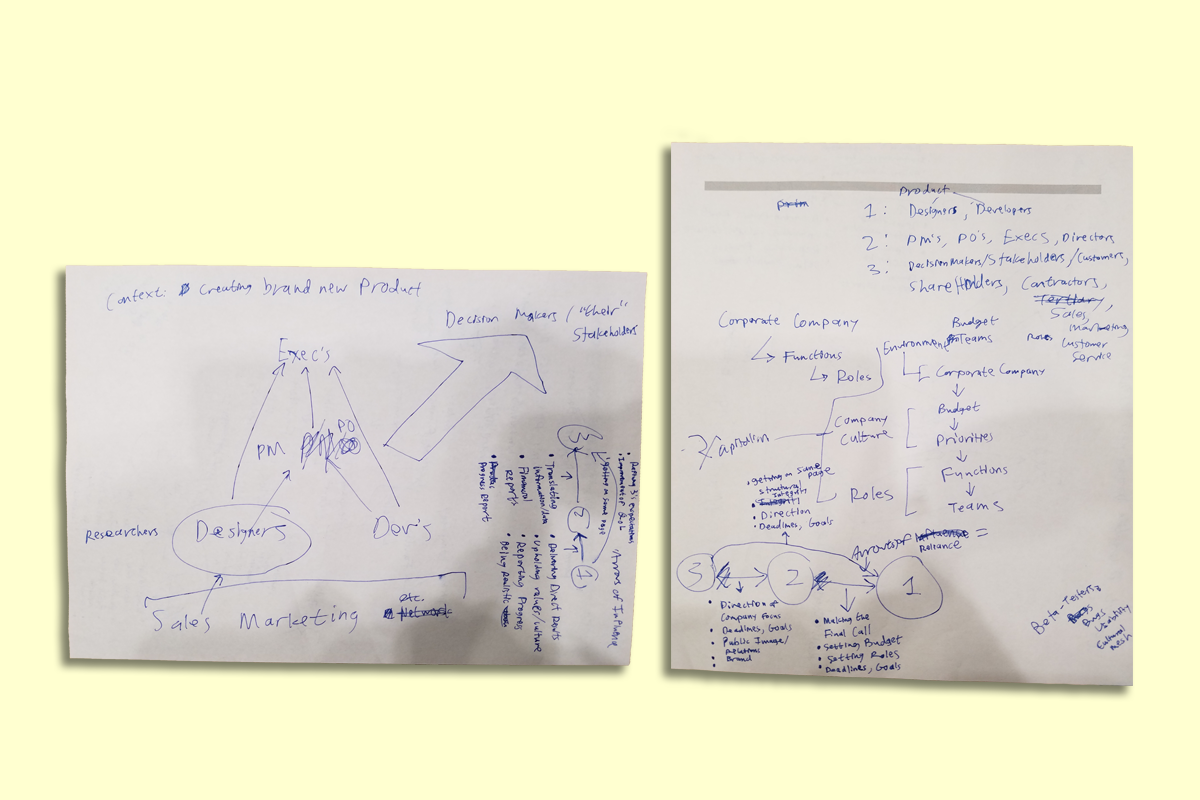 Context: Creating brand new Product
Decision Makers / "their"
Stakeholders
Exec's
PM
PO
Researchers
Designers
Dev's
Sales Marketing
etc.
Network
3
2
1
Getting on same page
Arrows of Influence
• Translating
information/data
• Financial
Reports
Progress Report
• Delivering Direct
• Upholding values/culture
• Reporting Progress
• Being realistic
Product
1: Designers, Developers
2: PM's, PO's, Execs, Directors
3: Decision Makers/Stakeholders/Customers,
Shareholders, Contractors,
Tertiary,
Sales,
Marketing,
Customer
Service
Corporate Company
Functions
Roles
Environment
Budget
Teams
Corporate Company
Budget
Priorities
Functions
Teams
Company
Culture
Capitalism
Roles
• Getting on same
page
structural
Integrity
• Integrity
• Direction
• Deadlines, Goals
Arrows of Influence =
Reliance
3
2
1
• Direction of
Company Focus
• Deadlines, Goals
• Public Image/
Relations
• Brand
• Making the
Final Call
• Setting Budget
• Setting Roles
• Deadlines, Goals
Beta-Tester's
Bugs
Bugs
Usability
Cultural
mesh